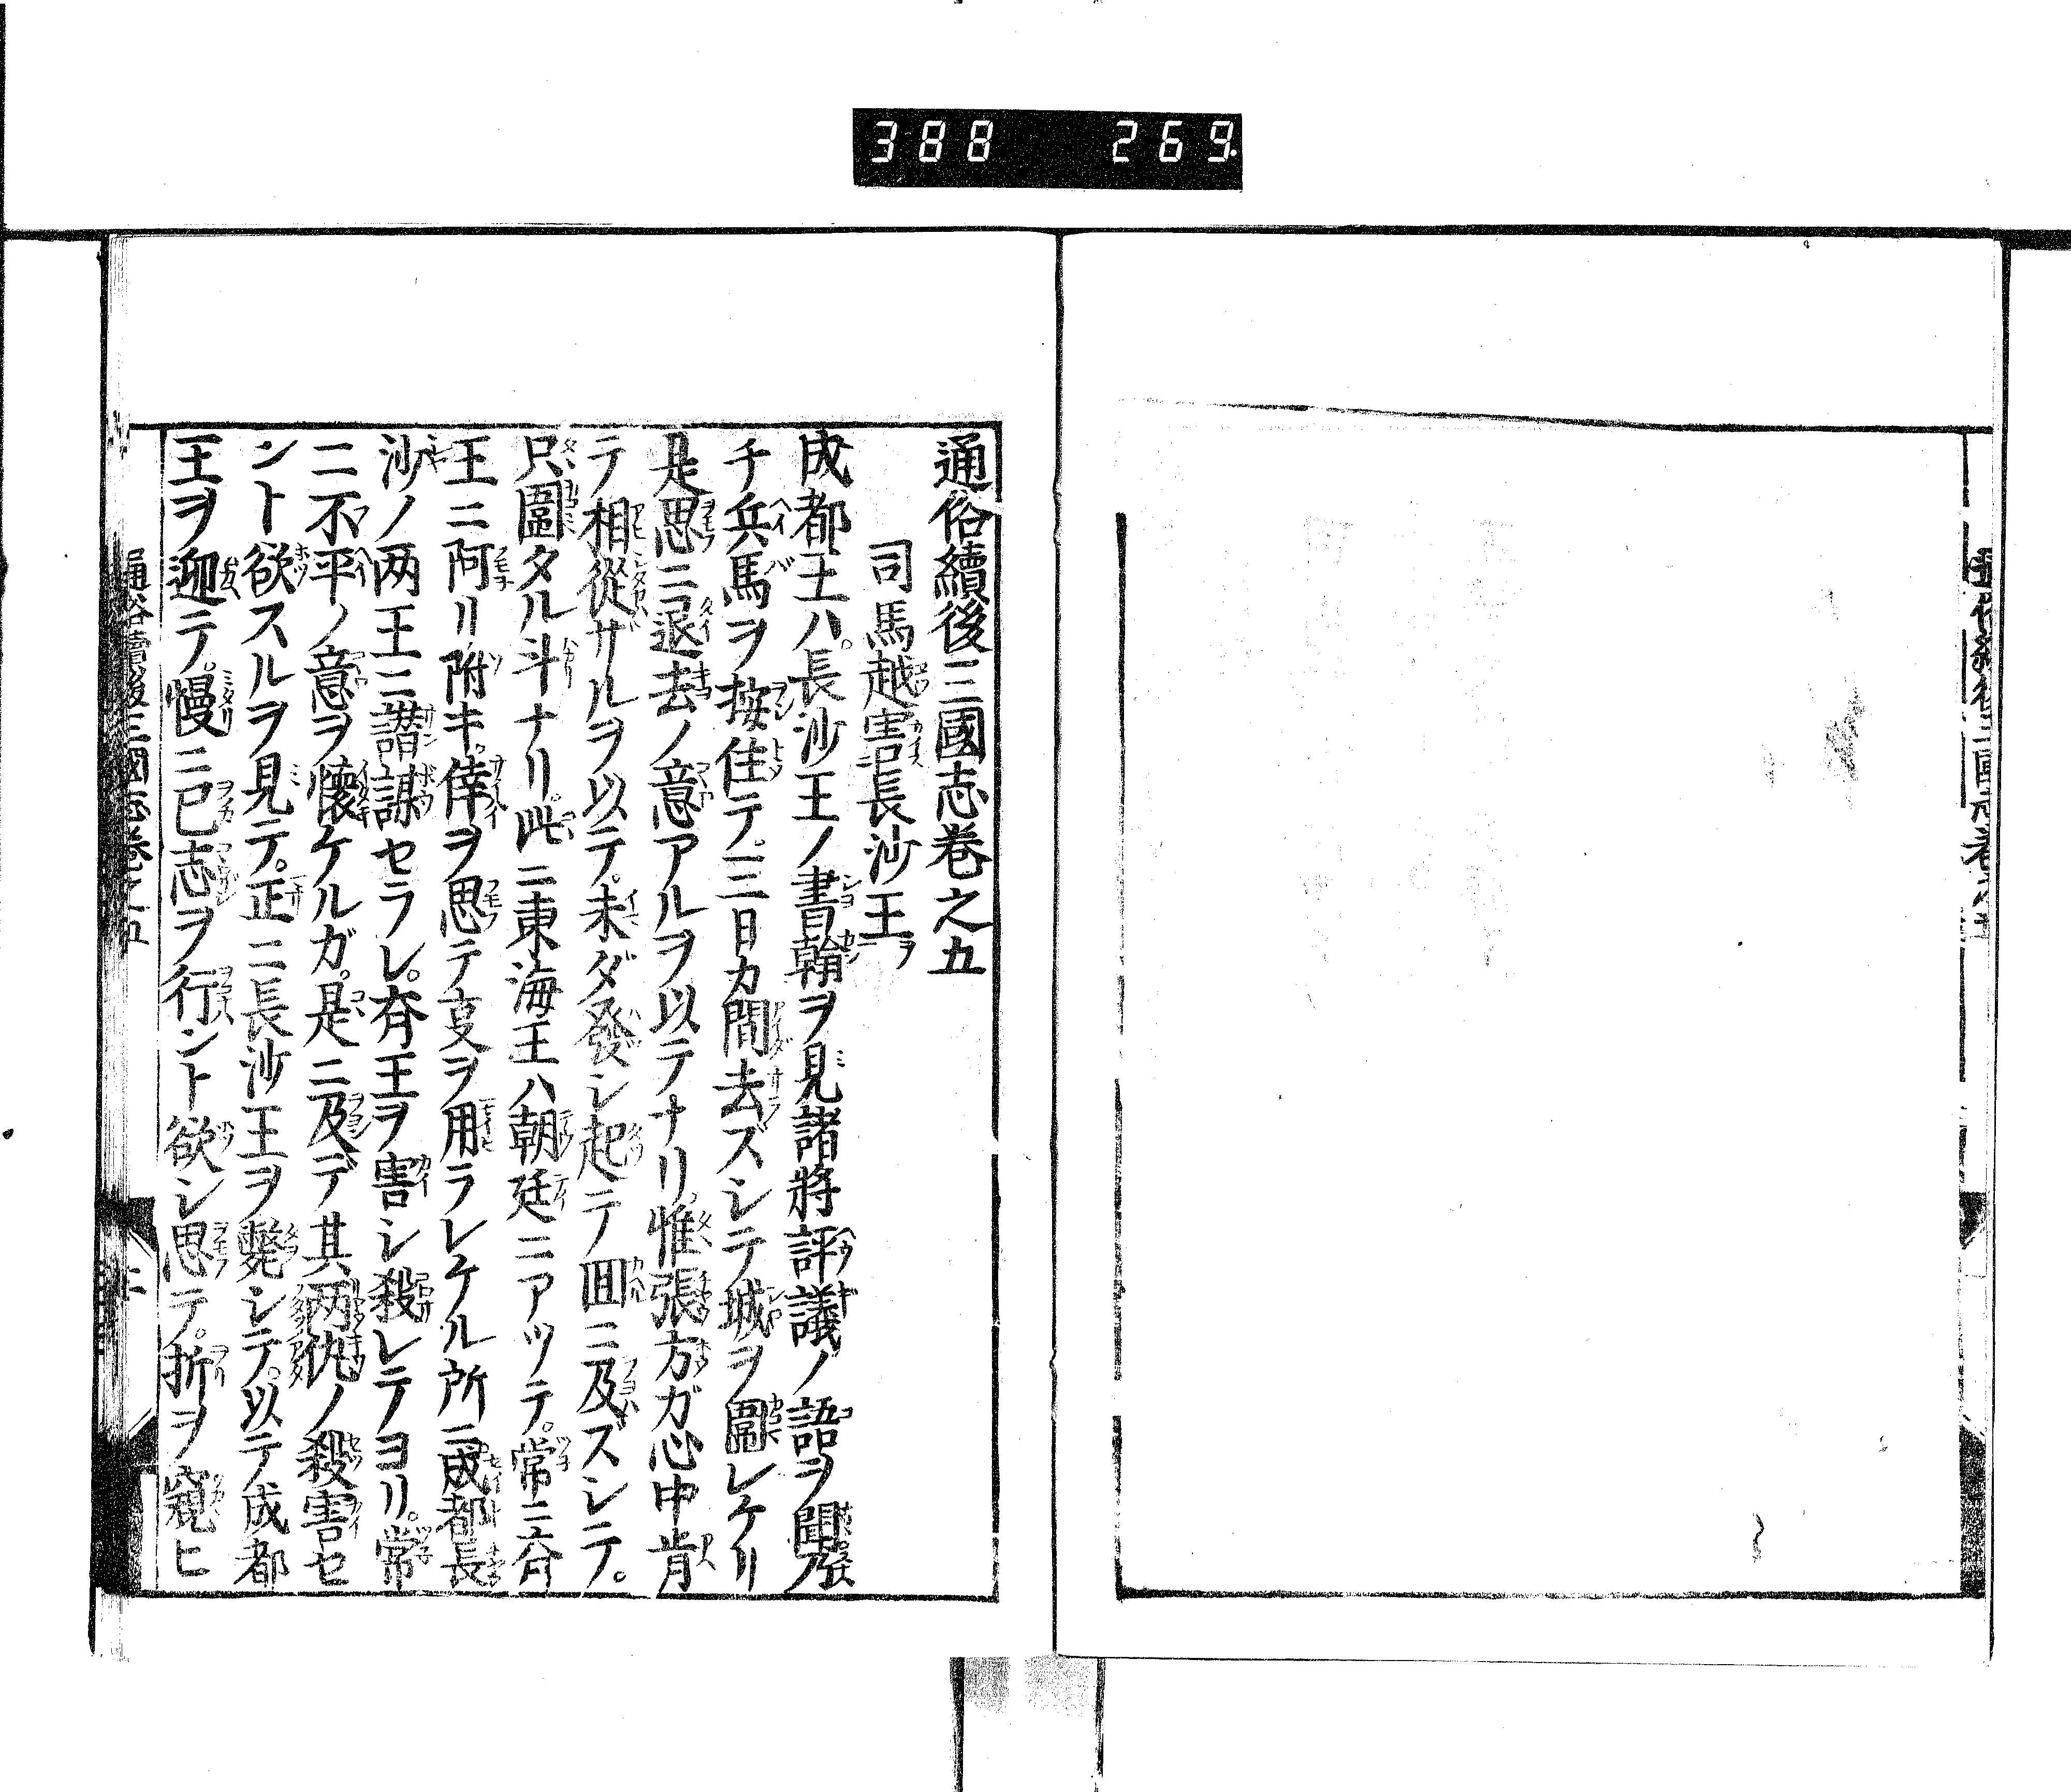 388 269.
通俗續後三國志卷之五
司馬越害長沙王ヲ
成都王ハ。長沙王ノ書翰ヲ見諸將評議ノ語ヲ聞
チ兵馬ヲ按住テ。三日カ間去ズシテ城ヲ圍レケリ
是思ニ退去ノ意アルヲ以テナリ。惟張方ガ心中肯
テ相從ザルヲ以テ。未ダ發シ起テ囬ニ及ズシテ。
只圍タル斗ナリ。此ニ東海王ハ朝廷ニアツテ。常ニ齊
王ニ阿リ附キ。倖ヲ思テ叓ヲ用ラレケル所ニ成都長
沙ノ两王ニ譖謀セラレ。齊王ヲ害シ殺レテヨリ。常
ニ不平ノ意ヲ懷ケルガ。是ニ及デ其两仇ノ殺害セ
ント欲スルヲ見テ。正ニ長沙王ヲ斃シテ。以テ成都
王ヲ迎テ。慢ニ已志ヲ行ント欲シ思テ。折ヲ窺ヒ
通俗續後三國志卷之五